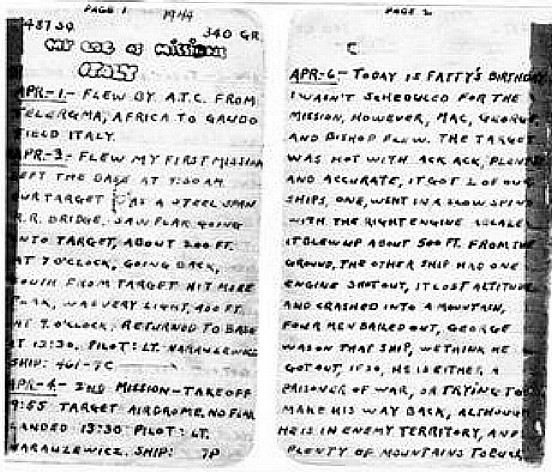 PAGE 1
1944
487 SQ. 340 GR.
MY LOG OF MISSIONS
ITALY
APR-1- FLEW BY A.T.C. FROM
TELERGMA, AFRICA TO GAUDO
FIELD ITALY.
APR-3- FLEW MY FIRST MISSION
LEFT THE BASE AT 9:30 AM
OUR TARGET WAS A STEEL SPAN
R.R. BRIDGE. SAW FLAK GOING
INTO TARGET, ABOUT 200 FT.
AT 7 O'CLOCK, GOING BACK,
SOUTH FROM TARGET HIT MORE
FLAK, WAS VERY LIGHT, 400 FT.
AT 7. O'CLOCK. RETURNED TO BASE
AT 13:30. PILOT: LT. NARAUZEWICZ
SHIP: 461-7C
APR-4- 2ND MISSION-TAKEOFF
9:55 TARGET AIRDROME. NO FLAK
LANDED 13:30 PILOT: LT.
NARAUZEWICZ. SHIP: 7P
PAGE 2
APR-6- TODAY IS FATTY'S BIRTHDAY
I WASN'T SCHEDULED FOR THE
MISSION, HOWEVER, MAC, GEORGE
AND BISHOP FLEW. THE TARGET
WAS HOT WITH ACK ACK, PLENTY
AND ACCURATE, IT GOT 2 OF OUR
SHIPS, ONE, WENT IN A SLOW SPIN
WITH THE RIGHT ENGINE ABLAZE
IT BLEW UP ABOUT 500 FT. FROM THE
GROUND, THE OTHER SHIP HAD ONE
ENGINE SHOT OUT, IT LOST ALTITUDE
AND CRASHED INTO A MOUNTAIN,
FOUR MEN BAILED OUT, GEORGE
WAS ON THAT SHIP, WE THINK HE
GOT OUT, IF SO, HE IS EITHER A
PRISONER OF WAR, OR TRYING TO
MAKE HIS WAY BACK, ALTHOUGH
HE IS IN ENEMY TERRITORY, AND
PLENTY OF MOUNTAINS TO BUCK